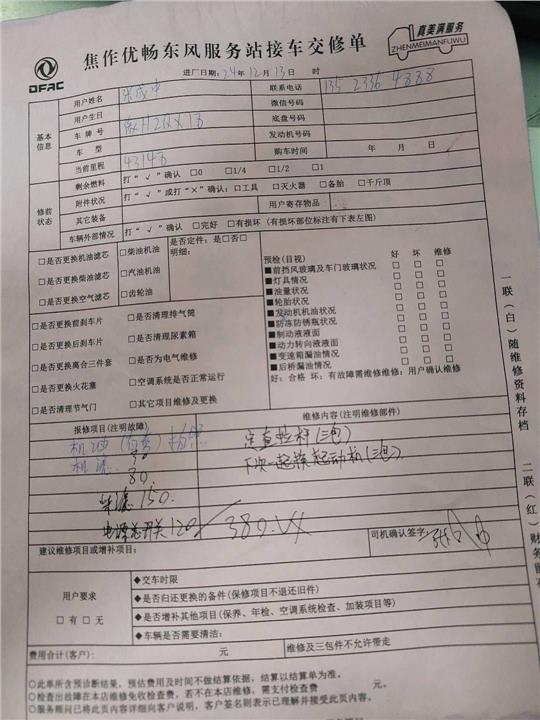 DFAC
焦作优畅东风服务站接车交修单
真美满服务
ZHENMEIMANFUWU
进厂日期：24年12月13日 时
基本信息
用户姓名
联系电话 135 2336 4888
用户生日
微信号码
车牌号
底盘号码
车型
发动机号码
当前里程 43148
购车时间 年 月 日
修前状态
剩余燃料 打“√”确认 □0 □1/4 □1/2 □1
附件状况 打“√”或打“×”确认：□工具 □灭火器 □备胎 □千斤顶
其它装备
用户寄存物品
车辆外部情况 打“√”确认 □完好 □有损坏（有损坏部位标注有下表左图）
□是否更换机油滤芯
□是否更换柴油滤芯
□是否更换空气滤芯
□柴油机油
□汽油机油
□齿轮油
是否定件：是□否□
明细：
□是否更换前刹车片
□是否更换后刹车片
□是否更换离合三件套
□是否更换火花塞
□是否清理节气门
□是否清理排气筒
□是否清理尿素箱
□是否为电气维修
□空调系统是否正常运行
□其它项目维修及更换
预检(目视) 好 坏 维修
■前挡风玻璃及车门玻璃状况 □ □ □
■灯具情况 □ □ □
■油量状况 □ □ □
■轮胎状况 □ □ □
■发动机机油状况 □ □ □
■防冻防锈瓶状况 □ □ □
■制动液液面 □ □ □
■动力转向液液面 □ □ □
■变速箱漏油情况 □ □ □
■后桥漏油情况 □ □ □
好：合格 坏：有故障需维修维修：用户确认维修
报修项目(注明故障)
维修内容(注明维修部件)
机油
机滤
80.
柴滤 150.
电源总开关 120
380.
(三包)
下次一起换起动机(三包)
司机确认签字：
建议维修项目或增补项目：
用户要求
□有 □无
◆交车时限
◆是否归还更换的备件（保修项目不退还旧件）
◆是否增补其他项目(保养、年检、空调系统检查、加装项目等)
◆车辆是否需要清洁：
费用合计(客户)： 元
维修及三包件不允许带走
○此单所含预诊断结果，预估费用及时间不做结算依据，结算以结算单为准。
○检查出故障在本店维修免收检查费，若不在本店维修，需支付检查费 元。
○服务顾问已将此页内容详细向客户说明，客户签名则表示已理解并接受此页内容。
一联（白）随维修资料存档
二联（红）财务